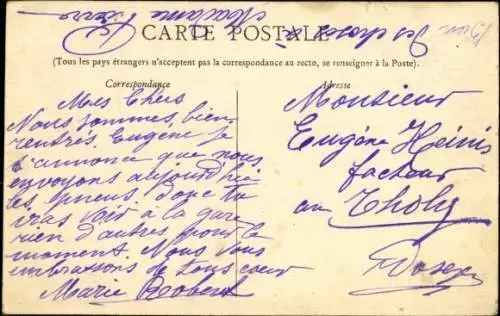 Bien des choses à
Madame Pierre
CARTE POSTALE
(Tous les pays étrangers n'acceptent pas la correspondance au recto, se renseigner à la Poste).
Correspondance
Mes Chers
Nous sommes bien
rentrés. Eugène je
t'annonce que nous
envoyons aujourd'hui
les pneus. donc tu
iras voir à la gare
rien d'autres pour le
moment. Nous vous
embrassons de tout coeur
Marie Robert
Adresse
Monsieur
Eugène Heinis
facteur
au Tholy
Vosges